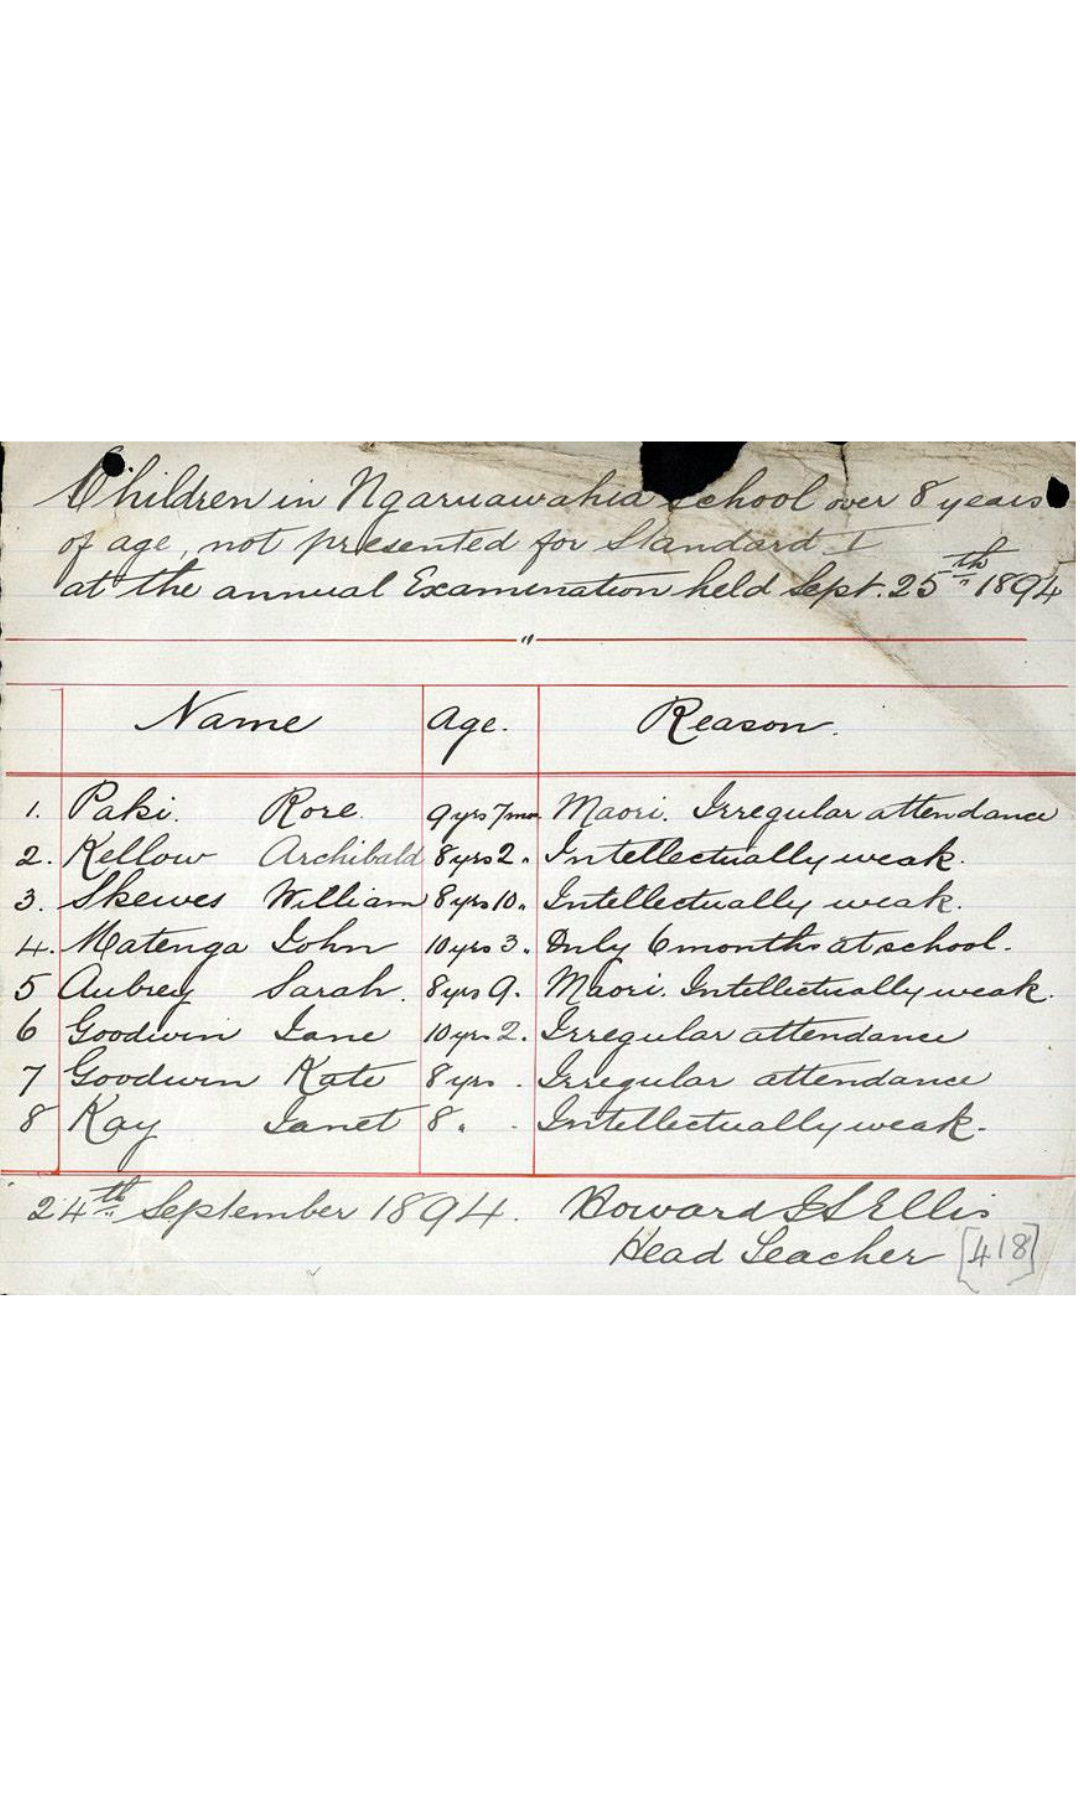 Children in Ngaruawahia School over 8 years
of age, not presented for Standard I
at the annual Examination held Sept. 25th 1894
"
Name Age. Reason.
1. Paki. Rore. 9 yrs 7 mos. Maori. Irregular attendance
2. Kellow Archibald 8 yrs 2 „ Intellectually weak.
3. Skewes William 8 yrs 10 „ Intellectually weak.
4. Matenga John 10 yrs 3 „ Only 6 months at school.
5 Aubrey Sarah. 8 yrs 9 „ Maori. Intellectually weak.
6 Goodwin Jane 10 yrs 2 „ Irregular attendance
7 Goodwin Kate 8 yrs . Irregular attendance
8 Kay Janet 8 „ . Intellectually weak.
24th September 1894. Howard Ellis
Head Teacher [418]